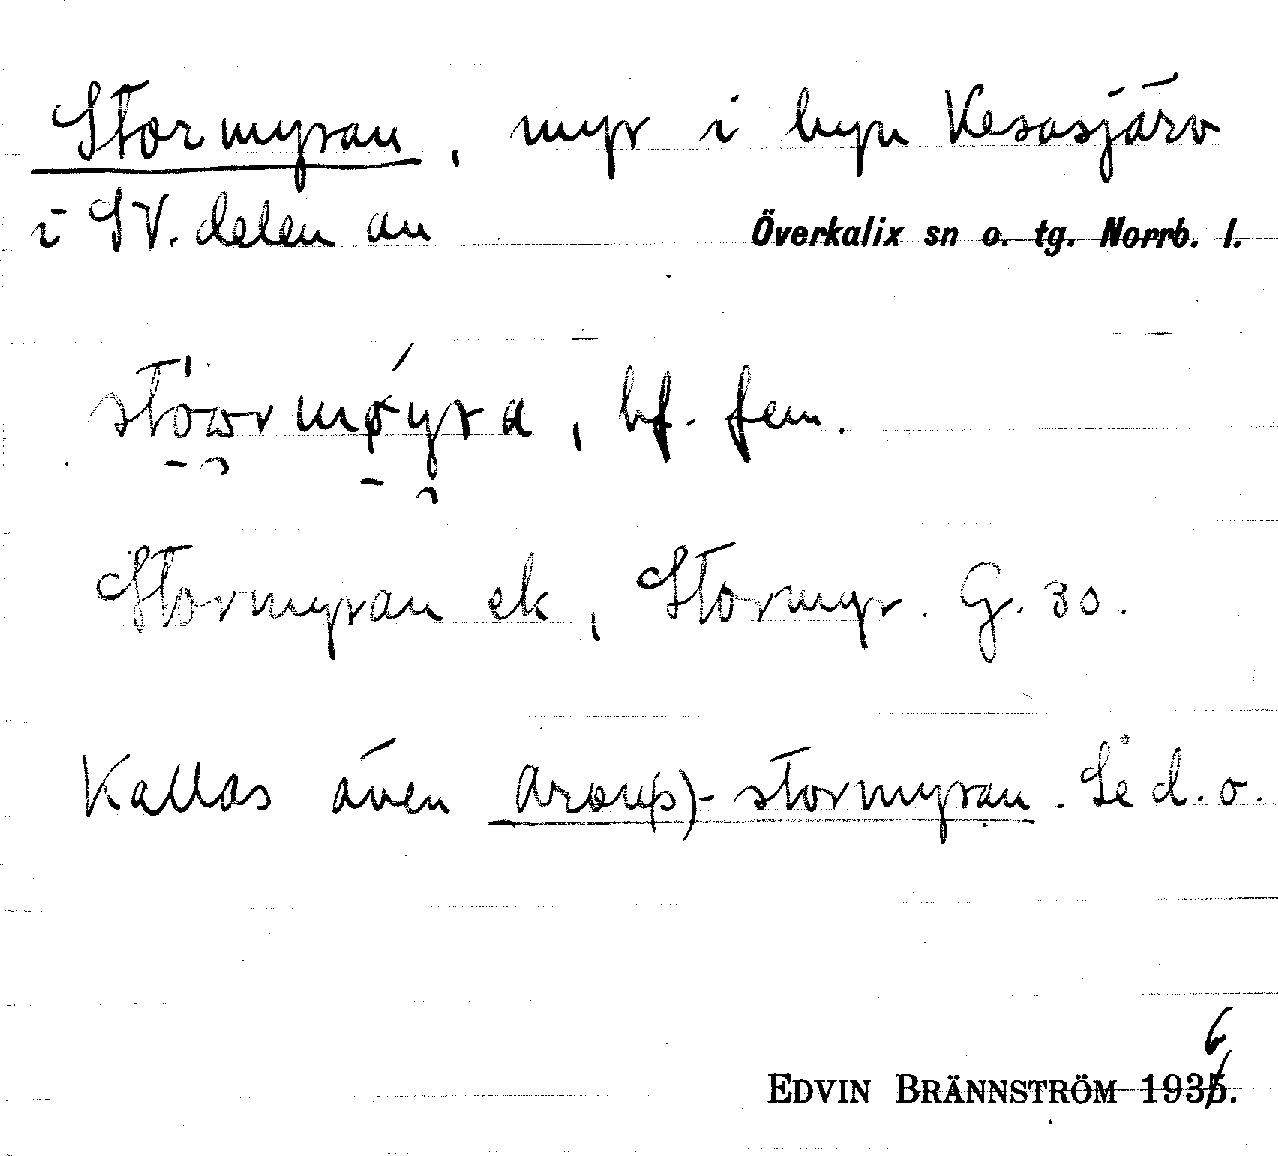 Stormyran, myr i byn Vesasjärv
i SV. delen av
Överkalix sn o. tg. Norrb. l.
stöwrmøyra, bf. fem.
Stormyran ek, Stormyr. G. 30.
Kallas även stormyran. Se d. o.
EDVIN BRÄNNSTRÖM 1936.